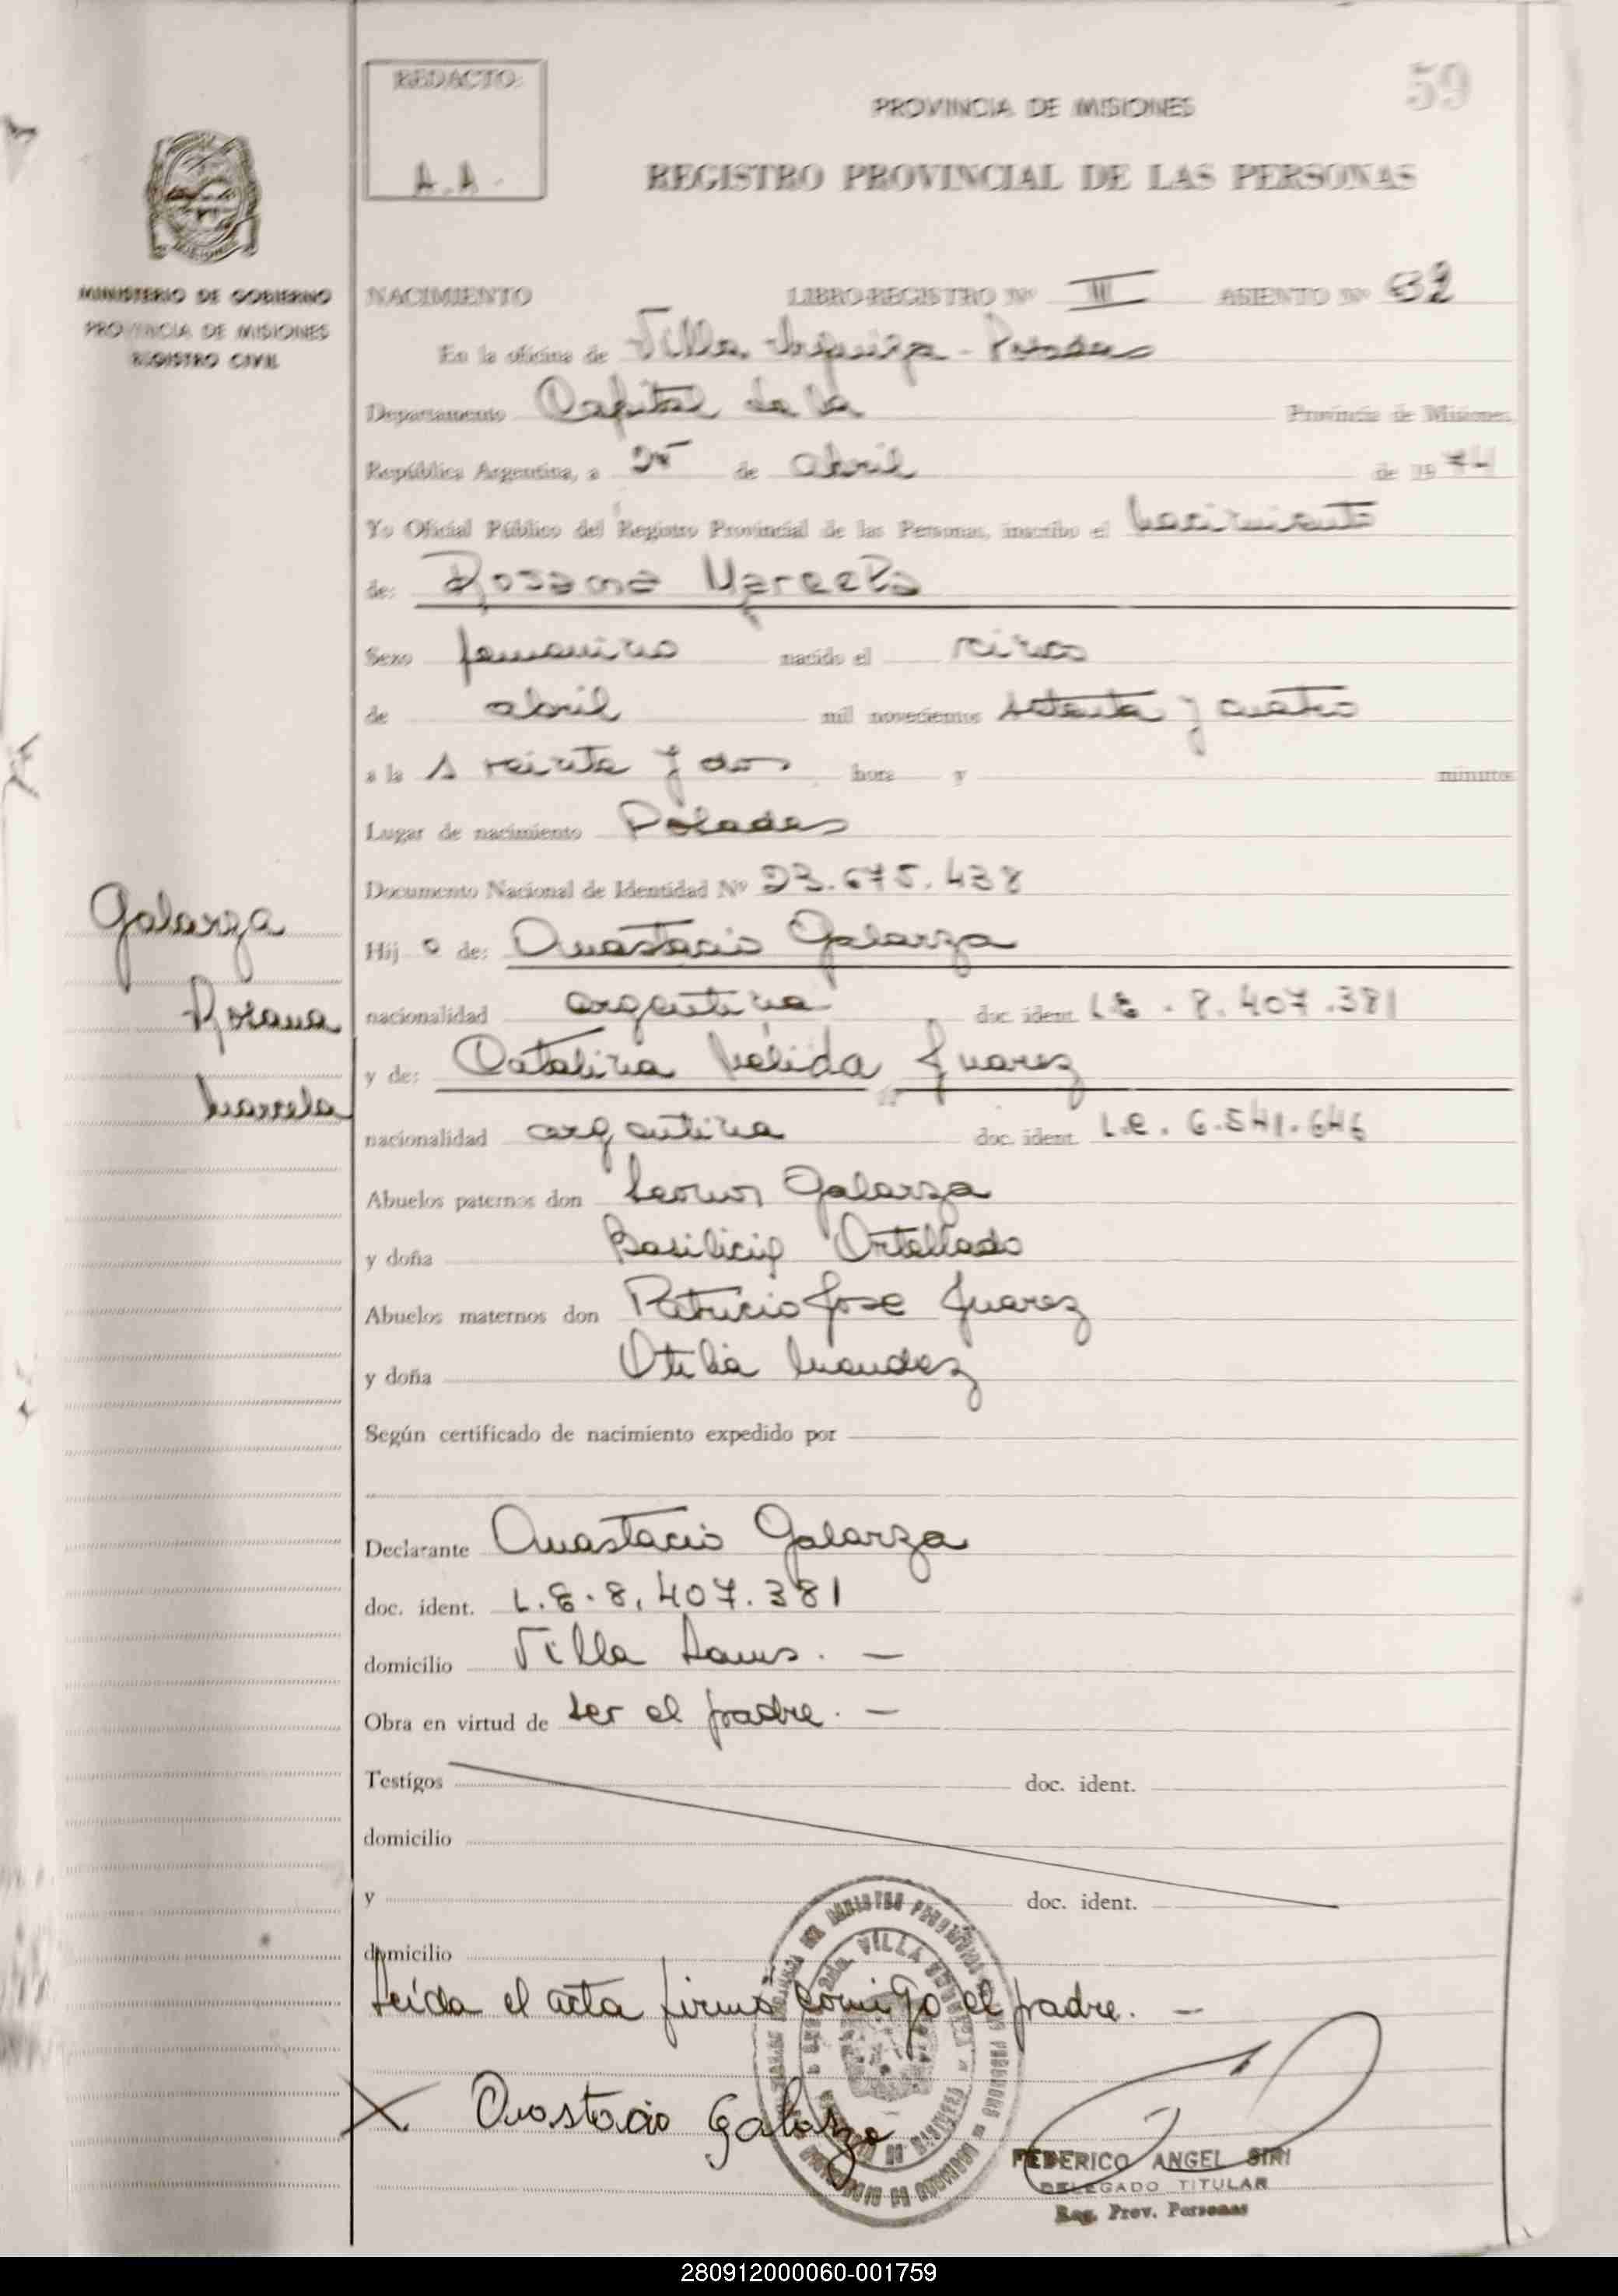 59
REDACTO:
A.A.
PROVINCIA DE MISIONES
REGISTRO PROVINCIAL DE LAS PERSONAS
MINISTERIO DE GOBIERNO
PROVINCIA DE MISIONES
REGISTRO CIVIL
NACIMIENTO LIBRO-REGISTRO Nº III ASIENTO Nº
En la oficina de Villa Urquiza - Posadas
Departamento Capital de la Provincia de Misiones,
República Argentina, a 25 de abril de 1974
Yo Oficial Público del Registro Provincial de las Personas, inscribo el nacimiento
de: Rosana Marcela
Sexo femenino nacido el cinco
de abril mil novecientos setenta y cuatro
a la s veinte y dos hora y minutos
Lugar de nacimiento Posadas
Documento Nacional de Identidad Nº 23.675.438
Galarza
Rosana
Marcela
Hij a de: Anastacio Galarza
nacionalidad argentina doc. ident. L.E. 8.407.381
y de: Catalina Nelida Juarez
nacionalidad argentina doc. ident. L.C. 6.541.646
Abuelos paternos don Galarza
y doña Basilicia Ortellado
Abuelos maternos don Patricio Jose Juarez
y doña Otilia Mendez
Según certificado de nacimiento expedido por
Declarante Anastacio Galarza
doc. ident. L.E. 8.407.381
domicilio Villa
Obra en virtud de ser el padre. —
Testigos doc. ident.
domicilio
y doc. ident.
domicilio
Leída el acta firma comigo el padre. —
X Anastacio Galarza
FEDERICO ANGEL SIRI
DELEGADO TITULAR
Reg. Prov. Personas
280912000060-001759